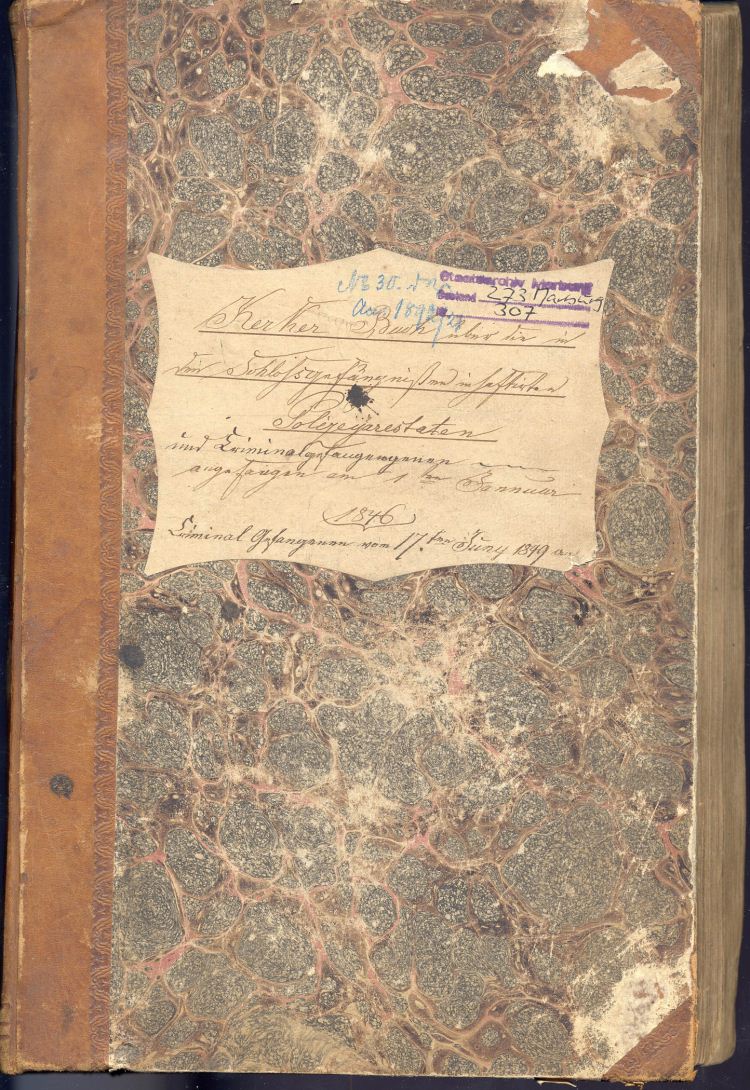 Staatsarchiv Marburg
Bestand 273 Marburg
Nr. 307
No 30.
Kerker Buch über die in
den Schloßgefängnißen inhaftirten
Polizeyarestaten
und Criminalgefangenen
angefangen am 1ten Jannuar
1846
Criminal Gefangenen vom 17.ten Juny 1849 an